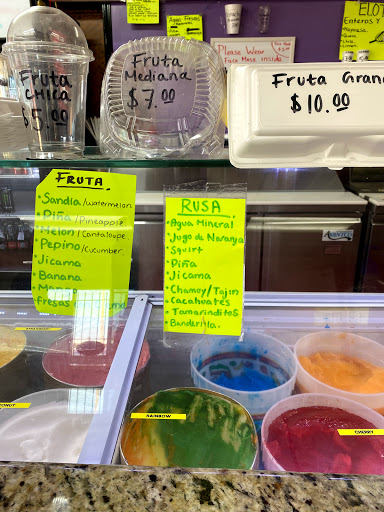 Fruta
CHICA
$5.00
Fruta
Mediana
$7.00
Fruta Grande
$10.00
Please Wear
Face Mask inside
ELOT
Enteros y
FRUTA
Sandia/Watermelon
Piña/Pineapple
Melon/Cantaloupe
Pepino/Cucumber
Jicama
Banana
fresas
RUSA
Agua Mineral
Jugo de Naranja
Squirt
Piña
Jicama
Chamoy/Tajin
Cacahuates
Tamarinditos
Banderilla.
RAINBOW
CHERRY